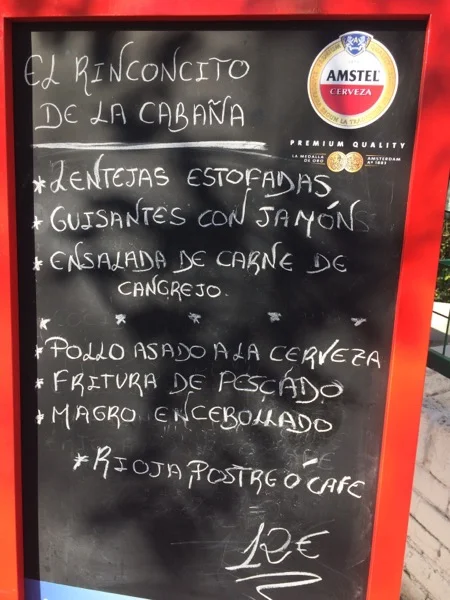 EL RINCONCITO
DE LA CABAÑA
AMSTEL
CERVEZA
PREMIUM QUALITY
LA MEDALLA DE ORO
AMSTERDAM Aº 1883
*LENTEJAS ESTOFADAS
*GUISANTES CON JAMÓN
*ENSALADA DE CARNE DE
CANGREJO.
* * * * *
*POLLO ASADO A LA CERVEZA
*FRITURA DE PESCADO
*MAGRO ENCEBOLLADO
*RIOJA, POSTRE Ó CAFE
12€